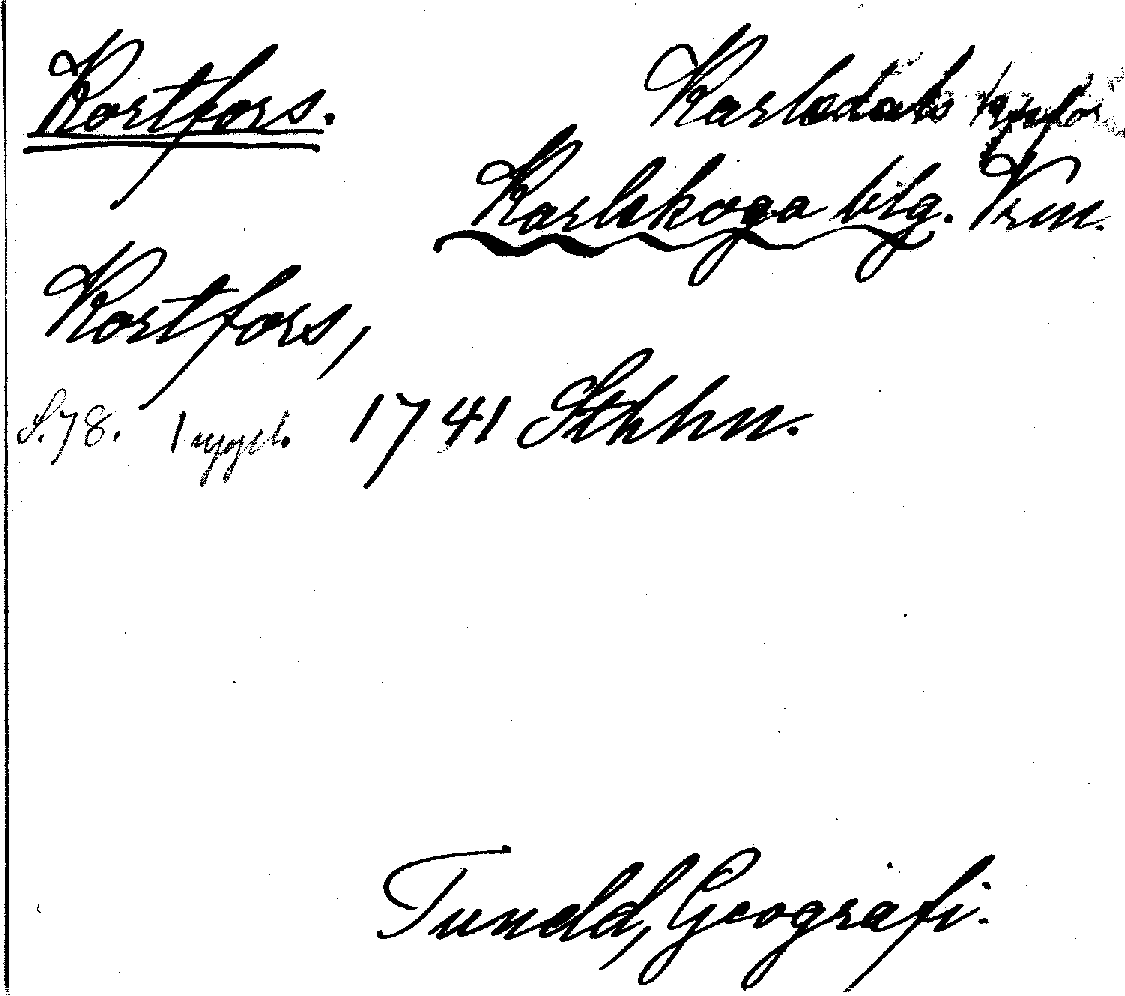 Kortfors.
Karlsdals kapför
Karlskoga blg. Vrm.
Kortfors,
S. 78. 1 uppl. 1741 Sthhn.
Tuneld, Geografi.